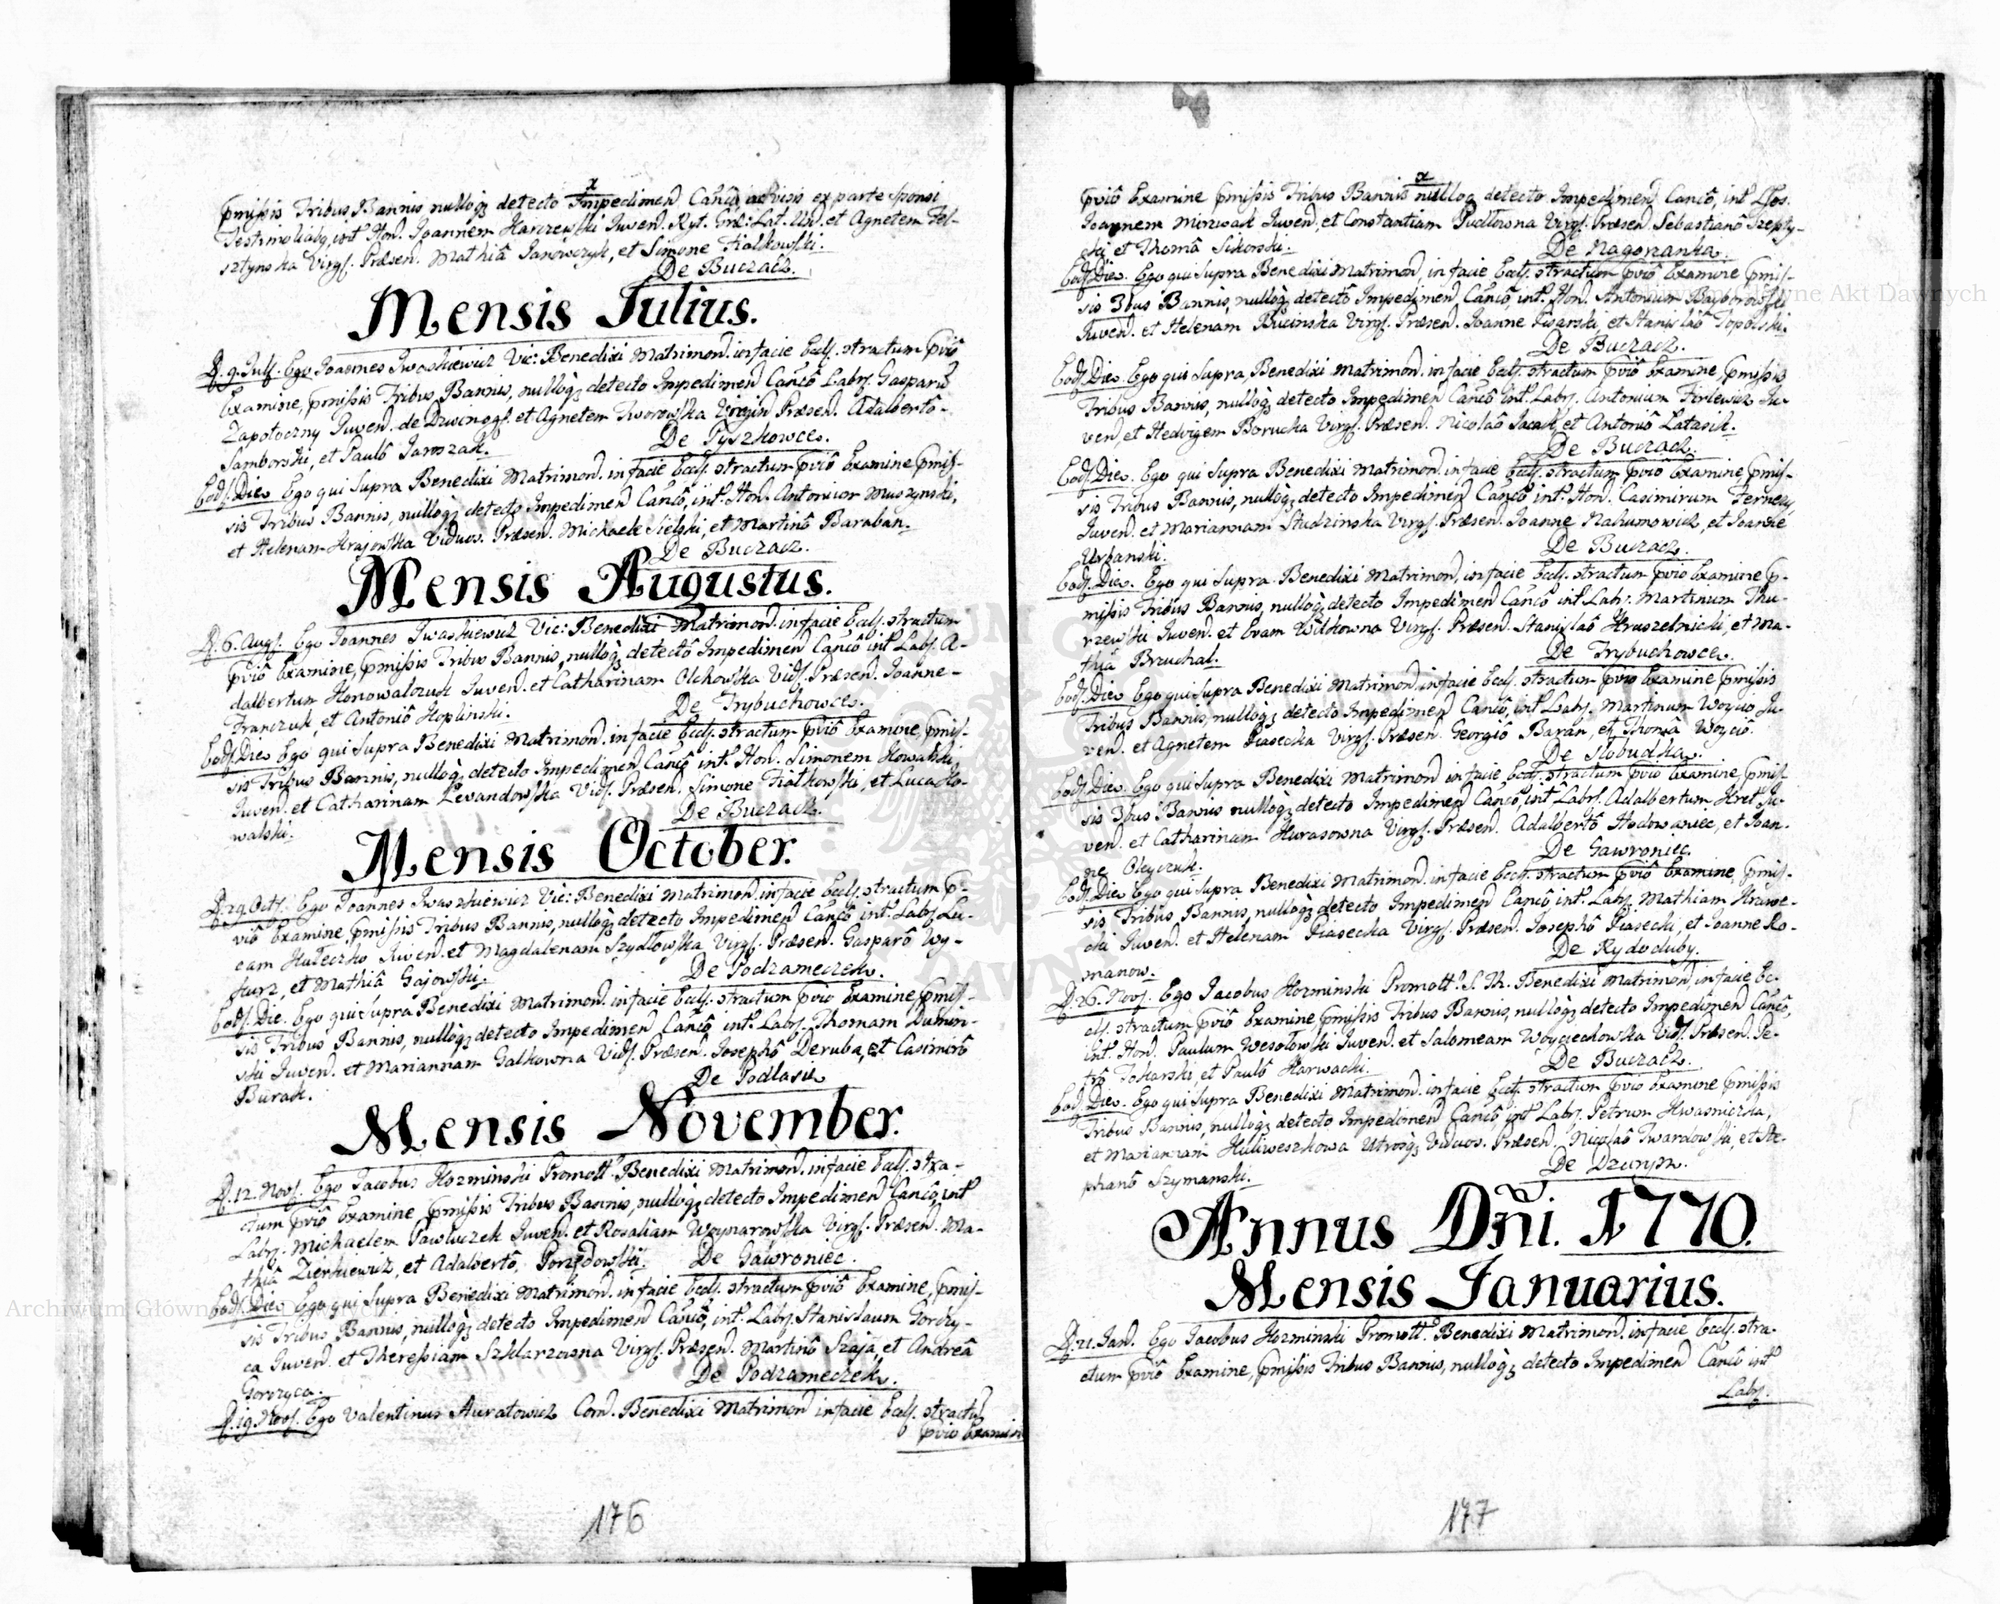 x
p̃missis Tribus Bannis nulloq; detecto Impedimen. Cano. ex parte Sponsi
Testimoliabq, int. Hon. Joannem Harczewski Juven. Ryt. Græ: Lat. Un. et Agnetem Fel-
sztynska Virg. Præsen. Mathiâ Janowczyk, et Simone Fialkowski.
De Buczacz.
Mensis Julius.
D. 9. Julÿ. Ego Joannes Jwaszkiewicz Vic: Benedixi Matrimon. in facie Eccl. stractum p̃viô
Examine, p̃missis Tribus Bannis, nulloq; detecto Impedimen Canco Labr. Gasparũ
Zapotoczny Juven. de Dzwinogr. et Agnetem Tworowska Virgin Præsen. Adalbertô-
Samborski, et Paulô Jamrzak.
De Pyszkowce.
Eod. Die. Ego qui supra Benedixi Matrimon. in facie Eccl. stractum p̃viô Examine p̃mis-
sis Tribus Bannis, nulloq; detecto Impedimen Canco, int. Hon. Antonium Muszynski,
et Helenam Krajowska Viduos. Præsen. Michaele Sielski, et Martinô Baraban-
De Buczacz.
Mensis Augustus.
D. 6. Aug. Ego Joannes Jwaszkiewicz Vic: Benedixi Matrimon. in facie Eccl. stractum
p̃viô Examine, p̃missis Tribus Bannis, nulloq; detectô Impedimen Canco int. Labr. A-
dalbertum Konowalczuk Juven. et Catharinam Olchowska Vid. Præsen. Joanne-
Franczuk, et Antoniô Koplinski.
De Trybuchowce.
Eod. Die. Ego qui Supra Benedixi Matrimon. in facie Eccl. stractum p̃viô Examine, p̃mis-
sis Tribus Bannis, nulloq; detecto Impedimen Canco int. Hon. Simonem Kowalski
Juven. et Catharinam Lewandowska Vid. Præsen. Simone Fialkowski, et Luca Ko-
walski.
De Buczacz.
Mensis October.
D. 29. Oct. Ego Joannes Jwaszkiewicz Vic: Benedixi Matrimon. in facie Eccl. stractum p̃-
viô Examine, p̃missis Tribus Bannis, nulloq; detecto Impedimen Canco int. Labr. Lu-
cam Huleczko Juven. et Magdalenam Szydlowska Virg. Præsen. Gasparô Wy-
furz, et Mathiâ Gajowski.
De Podzameczek.
Eod. Die. Ego qui supra Benedixi Matrimon. in facie Eccl. stractum p̃viô Examine, p̃mis-
sis Tribus Bannis, nulloq; detecto Impedimen Canco int. Labr. Thomam Dumin-
ski Juven. et Mariannam Galkowna Vid. Præsen. Josephô Deruba, et Casimirô
Burak.
De Podlasie
Mensis November.
D. 12. Nov. Ego Jacobus Kozminski Promott. Benedixi Matrimon. in facie Eccl. stra-
ctum p̃viô Examine, p̃missis Tribus Bannis, nulloq; detecto Impedimen Canco, int.
Labr. Michaelem Pawluczek Juven. et Rosaliam Woynarowska Virg. Præsen. Ma-
thiâ Zierkiewicz, et Adalbertô, Porzędowski.
De Gawroniec.
Eod. Die. Ego qui Supra Benedixi Matrimon. in facie Eccl. stractum p̃viô Examine, p̃mis-
sis Tribus Bannis, nulloq; detecto Impedimen Canco, int. Labr. Stanislaum Gorczy-
ca Juven. et Theresiam Szklarzowna Virg. Præsen. Martinô Szaja, et Andreâ
Gorczyca.
De Podzameczek.
D. 19. Nov. Ego Valentinus Auratowicz Com. Benedixi Matrimon in facie Eccl. stractũ
p̃viô Examine
176
x
p̃viô Examine p̃missis Tribus Bannis nulloq detecto Impedimen. Canco, int. Hos.
Joannem Minwak Juven, et Constantiam Pudlowna Virg. Præsen. Sebastianô Szepty-
cki et Thomâ Sikorski.
De Nagorzanka.
Eod. Die. Ego qui Supra Benedixi Matrimon. in facie Eccl. stractum p̃viô Examine p̃mis-
sis 3bus Bannis, nulloq; detectô Impedimen. Canco, int. Hon. Antonium Bayborowski
Juven. et Helenam Bucinska Virg. Præsen. Joanne Pisarski, et Stanislaô Topolski.
De Buczacz.
Eod. Die. Ego qui Supra, Benedixi Matrimon. in facie Eccl. stractum p̃viô Examine, p̃missis
Tribus Bannis, nulloq; detecto Impedimen Canco int. Labr. Antonium Firlewicz Ju-
ven, et Hedvigem Borucka Virg. Præsen. Nicolaô Jacak, et Antoniô Latasik.
De Buczacz.
Eod. Die. Ego qui Supra Benedixi Matrimon. in facie Eccl. stractum p̃viô Examine, p̃mis-
sis Tribus Bannis, nulloq; detecto Impedimen Canco int. Hon. Casimirum Ferneży
Juven. et Mariannam Studzinska Virg. Præsen. Joanne Nahumowicz, et Joanne
Urbanski.
De Buczacz.
Eod. Die. Ego qui Supra Benedixi Matrimon, in facie Eccl. stractum p̃vio Examine p̃-
missis Tribus Bannis, nulloq; detecto Impedimen Canco int. Labr. Martinum Thu-
rzewski Juven. et Evam Wilkowna Virg. Præsen. Stanislaô Kruszelnicki, et Ma-
thiâ Bruchal.
De Trybuchowce.
Eod. Die. Ego qui Supra Benedixi Matrimon. in facie Eccl. stractum p̃vio Examine p̃missis
Tribus Bannis, nulloq; detecto Impedimen Canco, int. Labr. Martinum Woycio Ju-
ven. et Agnetem Piasecka Virg. Præsen. Georgiô Baran, et Thomâ Woycio.
De Slobudka.
Eod. Die. Ego qui Supra Benedixi Matrimon in facie Eccl. stractum p̃viô Examine, p̃mis-
sis 3bus Bannis nulloq; detecto Impedimen Canco, int. Labr. Adalbertum Kret Ju-
ven. et Catharinam Kurasowna Virg. Præsen. Adalbertô Hodowaniec, et Joan-
ne Oleyczuk.
De Gawroniec.
Eod. Die. Ego qui Supra Benedixi Matrimon. in facie Eccl. stractum p̃viô Examine, p̃mis-
sis Tribus Bannis, nulloq; detecto Impedimen Canco int. Labr. Mathiam Krawe-
cki Juven. et Helenam Piasecka Virg. Præsen. Josephô Piasecki, et Joanne Ro-
manow.
De Rydoduby.
D. 26. Nov. Ego Jacobus Kozminski Promott. S. Th. Benedixi Matrimon, in facie Ec-
cl. stractum p̃viô Examine, p̃missis Tribus Bannis, nulloq; detecto Impedimen Canco,
int. Hon. Paulum Wesolowski Juven. et Salomeam Woyciechowska Vid. Præsen. Pe-
trô Tokarski, et Paulô Harwacki.
De Buczacz.
Eod. Die. Ego qui Supra Benedixi Matrimon. in facie Eccl. stractum p̃vio Examine p̃missis
Tribus Bannis, nulloq; detecto Impedimen Canco int. Labr. Petrum Kwasniczka,
et Mariannam Huliweszkowa Utrosq; Viduos. Præsen. Nicolaô Twardowski, et Ste-
phanô Szymanski.
De Dzuryn.
Annus Dñi. 1770.
Mensis Januarius.
D. 21. Jan. Ego Jacobus Kozminski Promott. Benedixi Matrimon. in facie Eccl. stra-
ctum p̃viô Examine, p̃missis Tribus Bannis, nulloq; detecto Impedimen Canco int.
Labr.
177